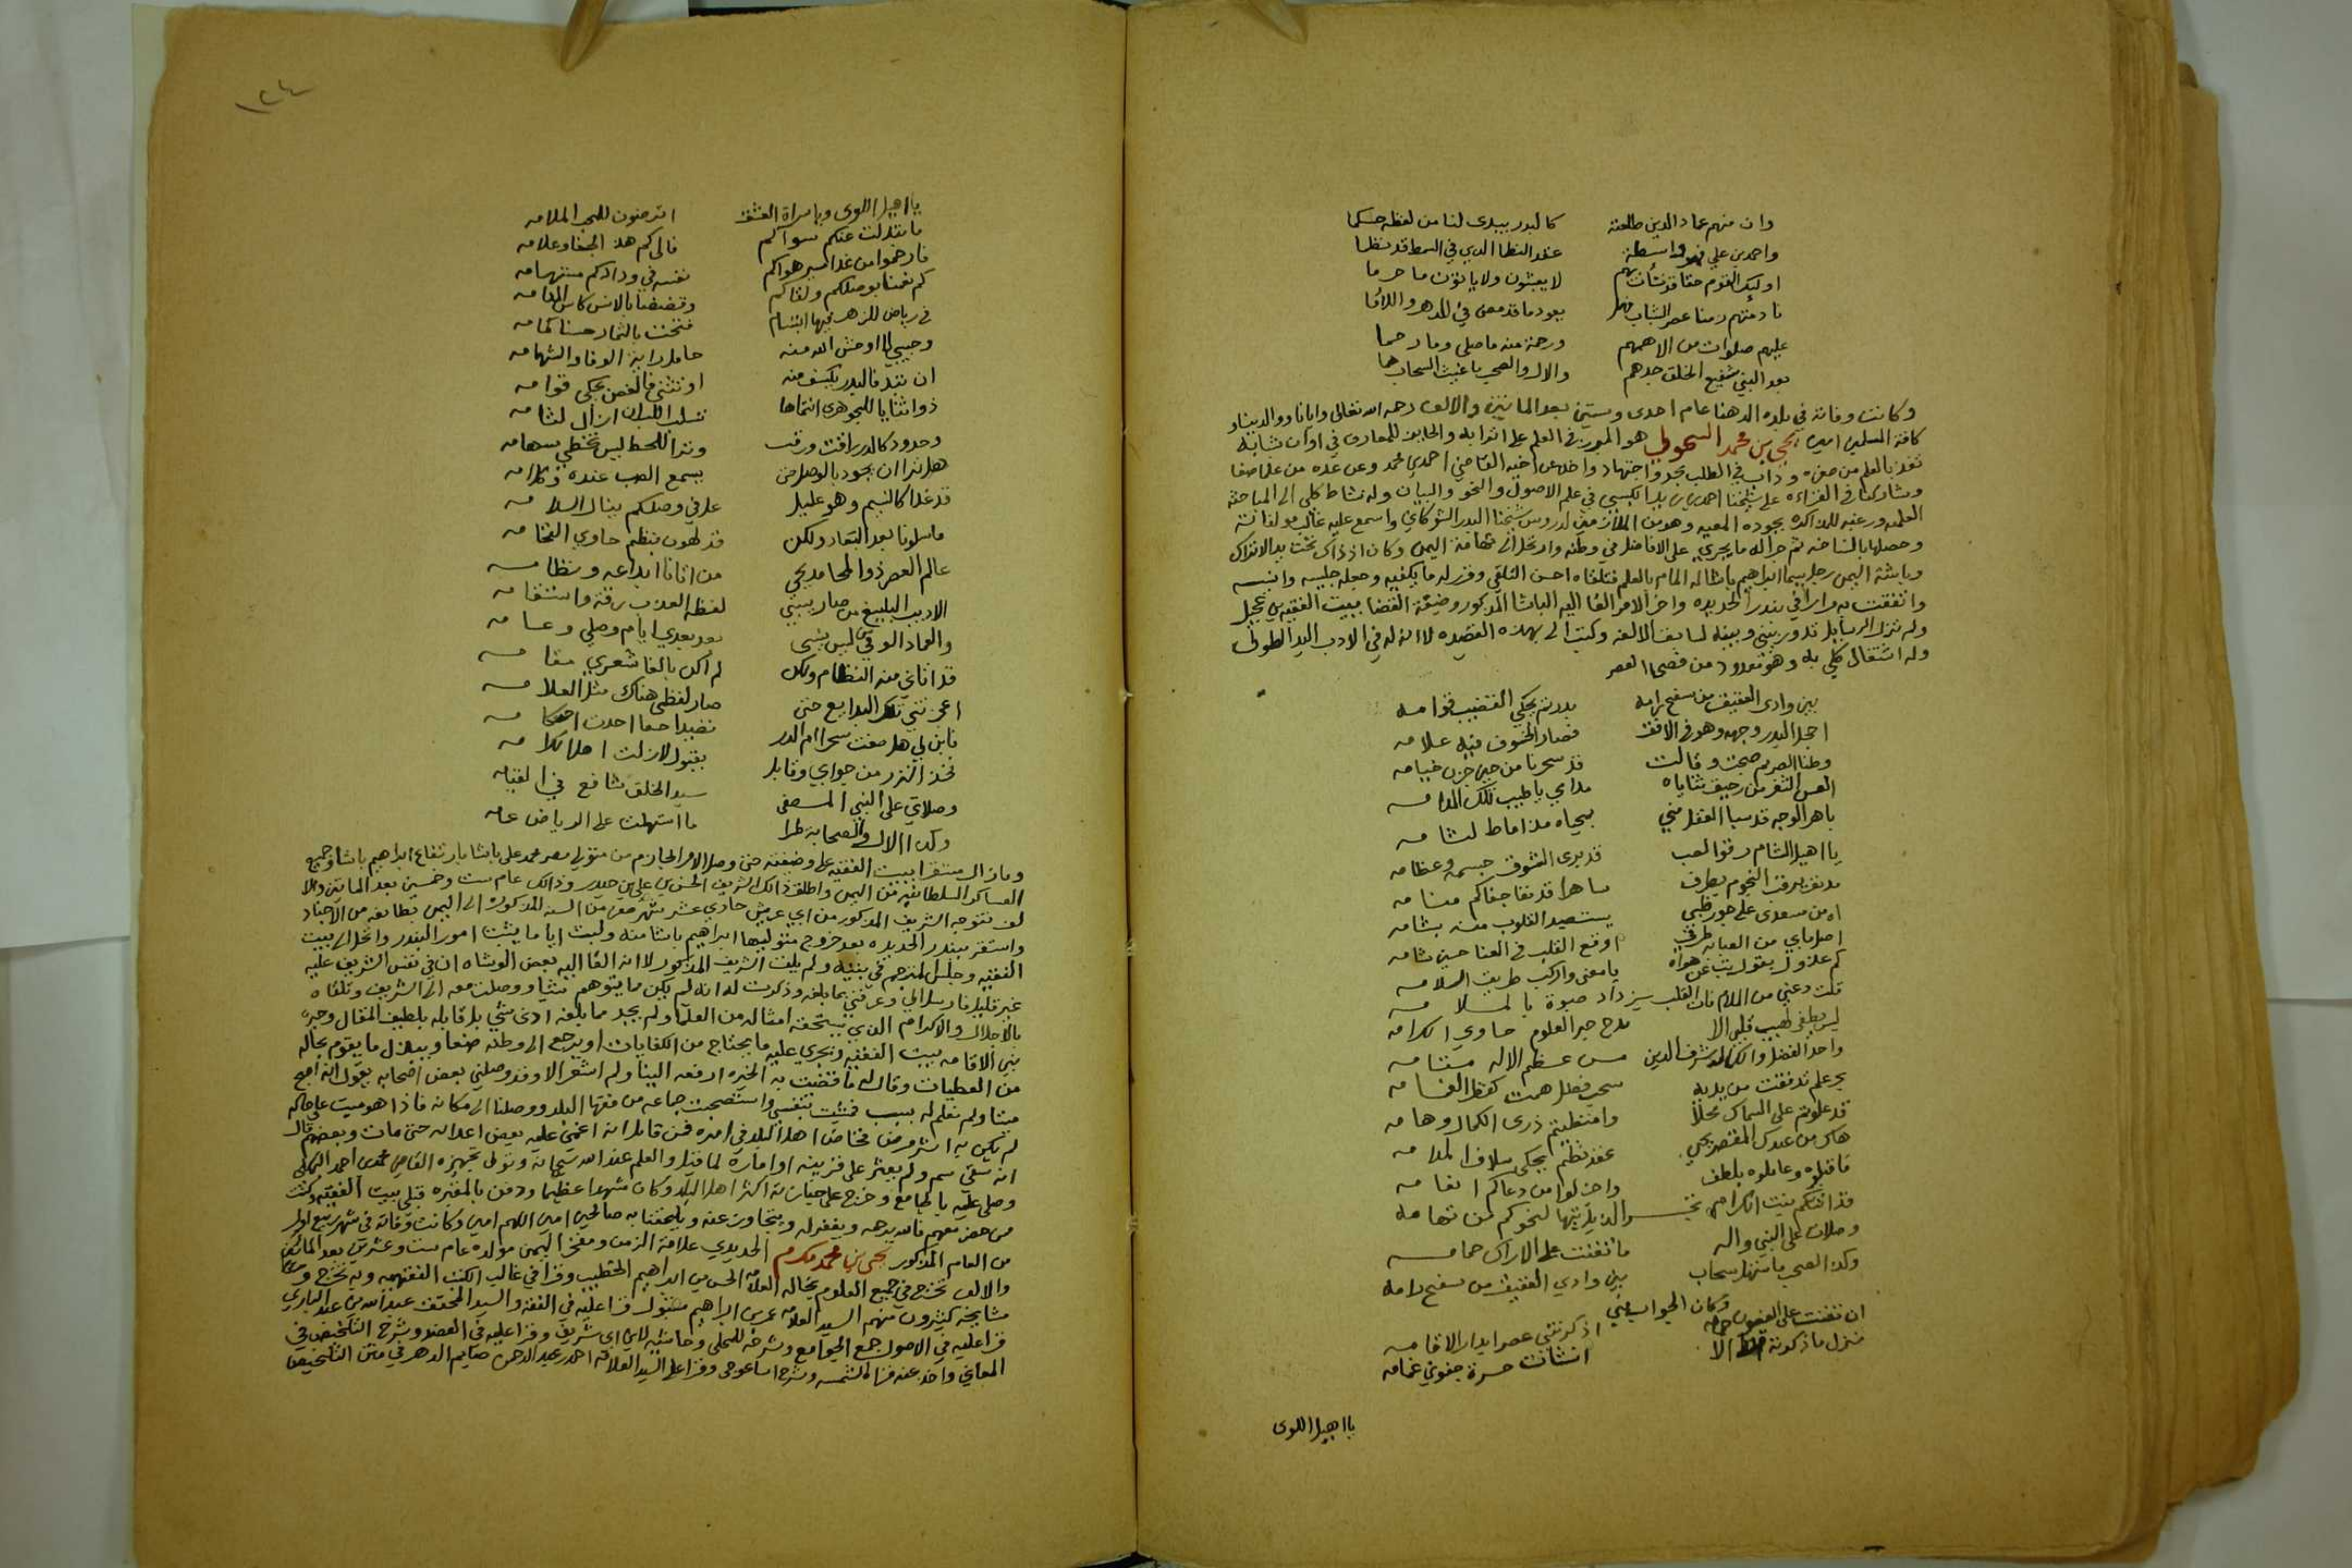 وان منهم عماد الدين طلعته كالبدر يبدى لنا من لفظه حكما
واحمد بن علي فهو واسطة عقد النظام الذي في السمط قد نظما
اوليك القوم حقا قد نشأت بهم لا يعبثون ولا يأتون ما حرما
نادمتهم زمنا عصر الشباب فهل يعود ما قد مضى في الدهر والتأما
عليهم صلوات من الاههم ورحمة منه ما صلى وما رحما
بعد النبي شفيع الخلق جدهم والال والصحب ما غيث السحاب هما
وكانت وفاته في بلده الدهنا عام احدى وستين بعد المائتين والالف رحمه الله تعالى وايانا ووالدينا و
كافة المسلمين امين يحيى بن محمد السحولي هو المبرز في العلم على اترابه والحايز للمعارف في اوان شبابه
تغذ بالعلم من صغره وداب في الطلب بجد واجتهاد واخذ عن اخيه القاضي احمد بن محمد وعن عده من علما صنعا
وشاركنا في القراءه على شيخنا احمد بن زيد الكبسي في علم الاصول والنحو والبيان وله نشاط كلي الى المباحث
العلميه ورغبه للمذاكره بجوده المعيه وهو من الملازمين لدروس شيخنا البدر الشوكاني واسمع عليه غالب مولفاته
وحصلها بالنساخه ثم جرا له ما يجري على الافاضل في وطنه وارتحل الى تهامة اليمن وكان اذ ذاك تحت يد الاتراك
وباشة اليمن رجل يسما ابراهيم باشا له المام بالعلم فتلقاه احسن التلقي وقرر له ما يكفيه وجعله جليسه وانيسه
واتفقت به مرارا في بندر الحديده واخر الامر القا اليه الباشا المذكور وضيفة القضا ببيت الفقيه بن عجيل
ولم تزل الرسايل تدور بيني وبينه لسابق الالفه وكتب الي بهذه القصيده لانه له في الادب اليد الطولى
وله اشتغال كلي به وهو معدود من فصحا العصر
بين وادي العقيق من سفح رامه بدر تم يحكي القضيب قوامه
اخجل البدر وجهه وهو في الافق فصار الخسوف فيه علامه
وظبا الصريم صحت وقالت قد سحرنا من جفن خبامه
العس الثغر من رحيق ثناياه مدامي يا طيب تلك المدامه
باهر الوجه قد سبا العقل مني بحياه مذ اماط لثامه
يا اهيل الشام رقوا لصب قد برى الشوق جسمه وعظامه
مدنف يرقب النجوم بطرف ساهرا قد نفا جفاكم منامه
اه من مسعدى على جور ظبي يستصيد القلوب منه بشامه
اوقع القلب في العنا حين شامه
كم عذول يقول تب عن هواه يا معنى واركب طريق السلامه
قلت دعني من الملام فان القلب يزداد صبوة بالملامه
ليس يطفي لهيب قلبي الا مدح حبر العلوم حاوي الكرامه
واحد الفضل والكمال شرف الدين من عظم الاله مقامه
بحر علم تدفقت من يديه سحب فضل همت كفيض الغمامه
قد علوتم على السماك محلا وامتطيتم ذرى الكمال وهامه
هاك من عبدك المقصر يحيى عقد نظم يحكي سلاف المدامه
فاقبلوه وعاملوه بلطف واخلوا من دعاكم انعامه
قد اتتكم بنت الكرام لنحوكم من تهامه
وصلاة على النبي واله ما تغنت على الاراك حمامه
وكذا الصحب ما استهل سحاب بين وادي العقيق من سفح رامه
وكان الجواب مني
ان تغنت على الغصون حمامه اذكرتني عصرا بدار الاقامه
منزل ما ذكرته الا انشات حسرة جفوني غمامه
يا اهيل اللوى
١٢٤
يا اهيل اللوى ويا سراة العشق اترضون للمحب الملامه
ما تبدلت عنكم سواكم فالى كم هذا الجفا وعلامه
فارحموا من غدا اسير هواكم نفسه في ودادكم مستهامه
كم نعمنا بوصلكم ولقاكم وقضضنا بالانس كاس المدامه
في رياض للزهر فيها ابتسام فتحت بالثمار حسنا كمامه
وحبيبي لا اوحش الله منه حامل راية الوفا والشهامه
ان تبد فالبدر يكسف منه او تثنى فالغصن يحكي قوامه
ذو ثنايا للجوهري انتماها تسلب اللب ان ازال لثامه
وخدود كالدر رافت ورقت وترا اللحظ ليس تخطي سهامه
هل ترا ان يجود بالوصل من يسمع الصب عنده وكلامه
قد غدا كالنسيم وهو عليل عله في وصلكم ينال السلامه
ما سلونا بعد البعاد ولكن قد لهونا بنظم حاوي الفخامه
عالم العصر ذو المحامد يحيى من اتانا ابداعه ونظامه
الاديب البليغ من صار يسبي لفظه العذب رقة وانسجامه
والعماد الوفي من ليس ينسى بعد بعدي ايام وصلي وعامه
قد اتاني منه النظام ولكن لم اكن بالغا بشعري مقامه
اعجزتني تلك البدايع حتى صار لفظي هناك مثل العلامه
فابن لي هل صغت سحرا ام الدر نضيدا حقا احدت احكامه
فخذ النزر من جوابي وقابل بقبول لا زلت اهل كرامه
وصلاتي على النبي المصطفى سيد الخلق شافع في القيامه
وكذا الال والصحابة طرا ما استهلت على الرياض غمامه
وما زال مستقرا ببيت الفقيه على وضيفته حتى وصل الامر الجازم من متولي مصر محمد علي باشا بارتفاع ابراهيم باشا وجميع
العساكر السلطانيه من اليمن واطلق ذالك الشريف الحسين بن علي بن حيدر وذالك عام ست وخمسين بعد المايتين والا
لف فتوجه الشريف المذكور من ابي عريش حادي عشر شهر صفر من السنه المذكوره الى اليمن بطايفه من الاجناد
واستقر ببندر الحديده بعد خروج متوليها ابراهيم باشا منه ولبث اياما يثبت امور البندر وارتحل الى بيت
الفقيه وجلس المترجم في بيته ولم يلق الشريف المذكور لانه القا اليه بعض الوشاه ان في نفس الشريف عليه
غير قليل فارسل الي وعرفني بما بلغه وذكرت له انه لم يكن ما يتوهم شيا ووصلت معه الى الشريف وتلقاه
بالاجلال والاكرام الذي يستحقه امثاله من العلما ولم يجد مما بلغه ادنى شي بل قابله بلطيف المقال وخيره
بين الاقامه ببيت الفقيه ويجري عليه ما يحتاج من الكفايات او يرجع الى وطنه صنعا ويبذل ما يقوم بحاله
من العطيات وقال له ما قضت به الخيره ارفعه الينا ولم اشعر الا وقد وصلني بعض اصحابه يقول انه اصبح
ميتا ولم نعلم له بسبب فجيئت بنفسي واستصحبت جماعه من فقها البلد ووصلنا الى مكانه فاذا هو ميت على حاله
لم يكن به اثر مرض فخاض اهل البلد في امره فمن قايل انه اغمى عليه بعض اعدايه حتى مات وبعضهم قال
انه سقي سم ولم يعثر على قرينه او امارة لما قيل والعلم عند الله سبحانه وتولى تجهيزه القاضي محمد بن احمد البهكلي
وصلي عليه بالجامع وخرج على جنازته اكثر اهل البلد وكان مشهدا عظيما ودفن بالمقبره قبلي بيت الفقيه وكنت
من حضر معهم فالله يرحمه ويغفر له ويتجاوز عنه ويلحقنا به صالحين امين اللهم امين وكانت وفاته في شهر ربيع اول
من العام المذكور يحيى بن محمد مكرم الحديدي علامة الزمن ومفخر اليمن مولده عام ست وعشرين بعد المائتين
والالف تخرج في جميع العلوم بخاله العلامه الحسن بن ابراهيم الخطيب وقرا في غالب الكتب الفقهيه وبه تخرج و
مشايخه كثيرون منهم السيد العلامه عمر بن ابراهيم مقبول قرا عليه في الفقه والسيد المحقق عبد الله بن عبد الباري
قرا عليه في الاصول جمع الجوامع وشرحه للمحلي وحاشيته لابن ابي شريف وقرا عليه في العضد وشرح التلخيص في
المعاني واخذ عنه في الشمسيه وشرح ايساغوجي وقرا على السيد العلامه احمد بن عبد الرحمن صايم الدهر في متن التلخيص